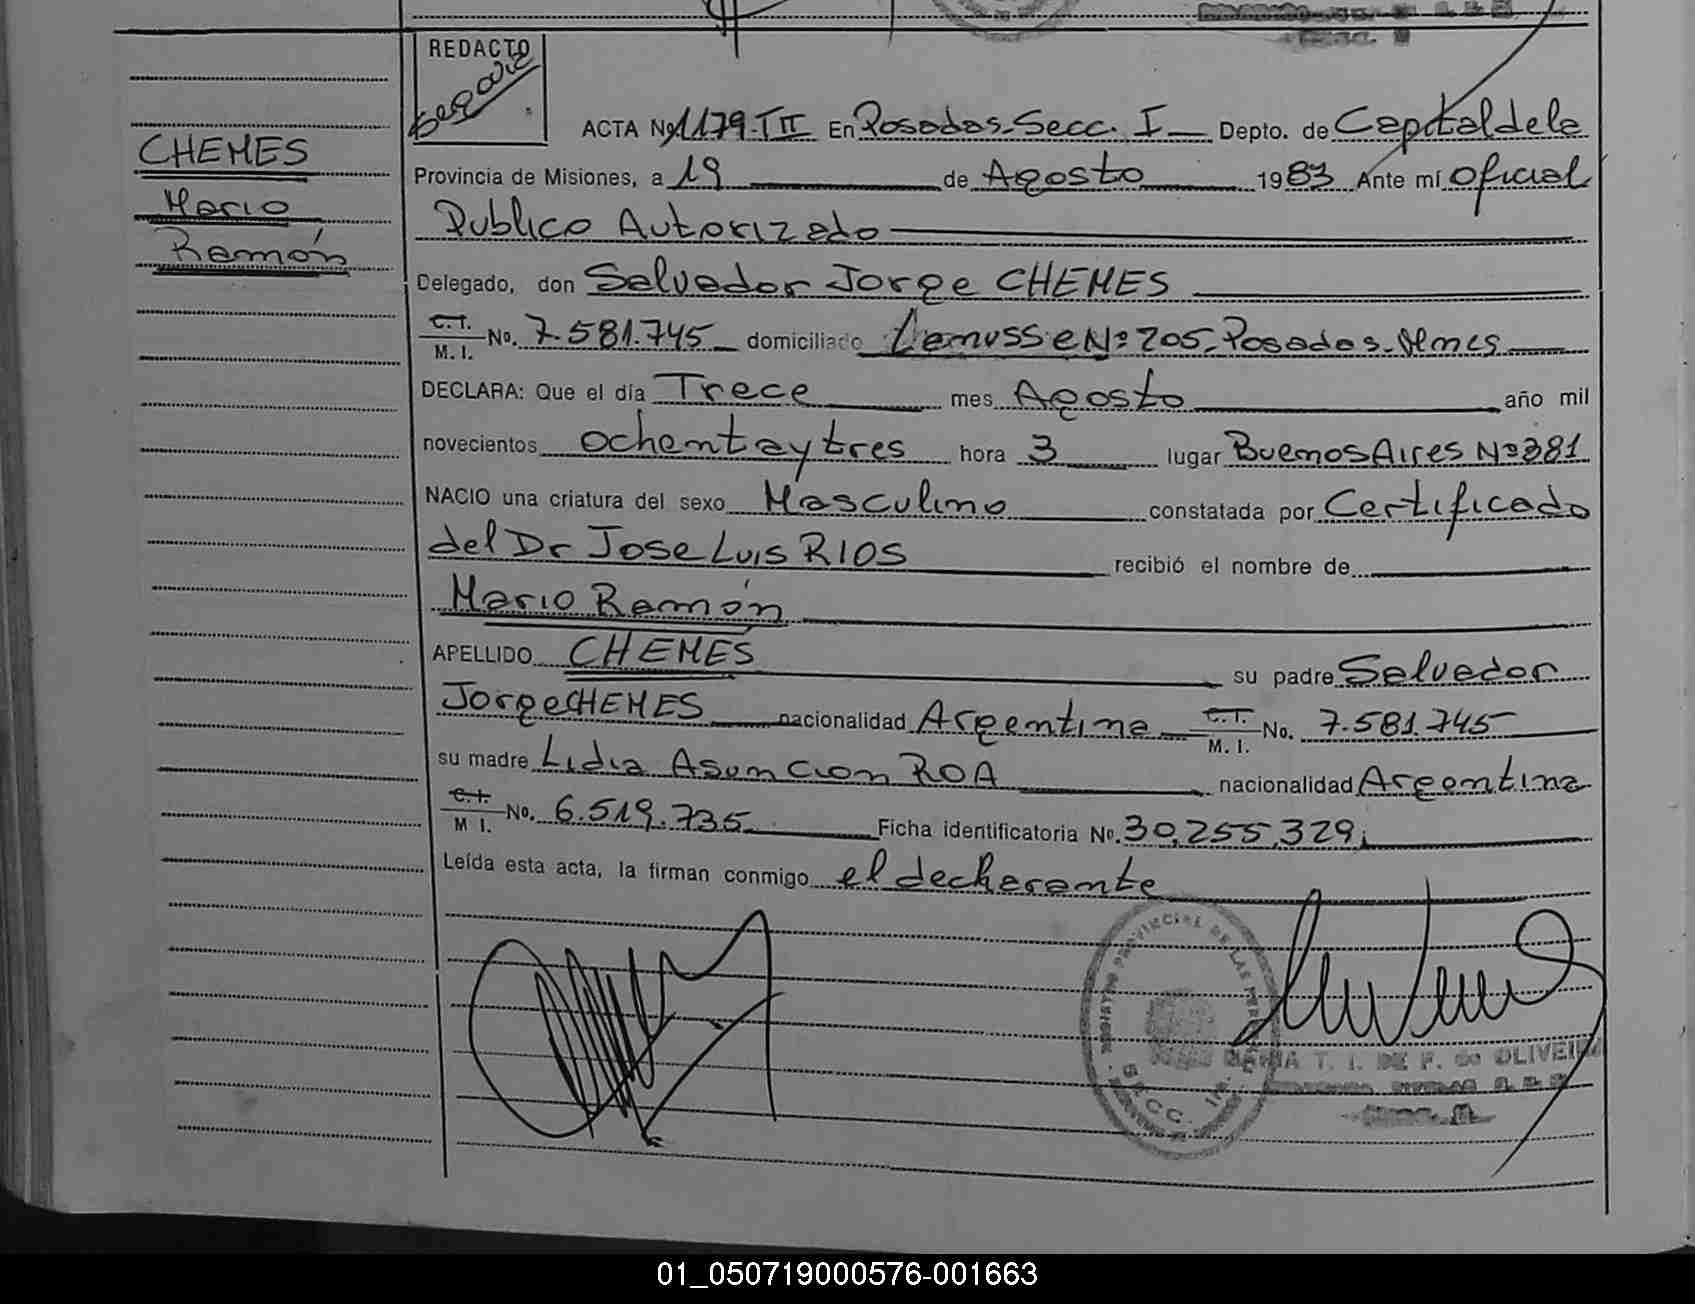 REDACTO
CHEMES
Mario
Ramón
ACTA Nº 1179-III En Posadas-Secc. I Depto. de Capital de la
Provincia de Misiones, a 19 de Agosto 1983 Ante mí Oficial
Publico Autorizado
Delegado, don Salvador Jorge CHEMES
C.I.
M. I. No. 7.581.745 domiciliado Nº 205-Posadas-Mnes
DECLARA: Que el día Trece mes Agosto año mil
novecientos ochenta y tres hora 3 lugar Buenos Aires Nº 381
NACIO una criatura del sexo Masculino constatada por Certificado
del Dr Jose Luis RIOS recibió el nombre de
Mario Ramón
APELLIDO CHEMES su padre Salvador
Jorge CHEMES nacionalidad Argentina C.I.
M. I. No. 7.581.745
su madre Lidia Asuncion ROA nacionalidad Argentina
C.I.
M I. No. 6.519.735 Ficha identificatoria No. 30,255,329
Leída esta acta, la firman conmigo el declarante
REGISTRO PROVINCIAL DE LAS
SECC. 1ra.
T. I. DE F. de OLIVEIRA
01_050719000576-001663